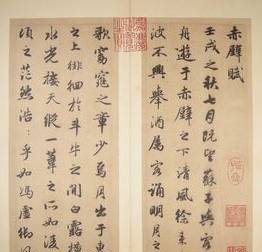 赤壁賦
壬戌之秋七月既望蘇子與客泛
舟遊於赤壁之下清風徐來水
波不興舉酒屬客誦明月之詩
歌窈窕之章少焉月出於東山
之上徘徊於斗牛之間白露橫江
水光接天縱一葦之所如凌萬
頃之茫然浩浩乎如馮虛御風